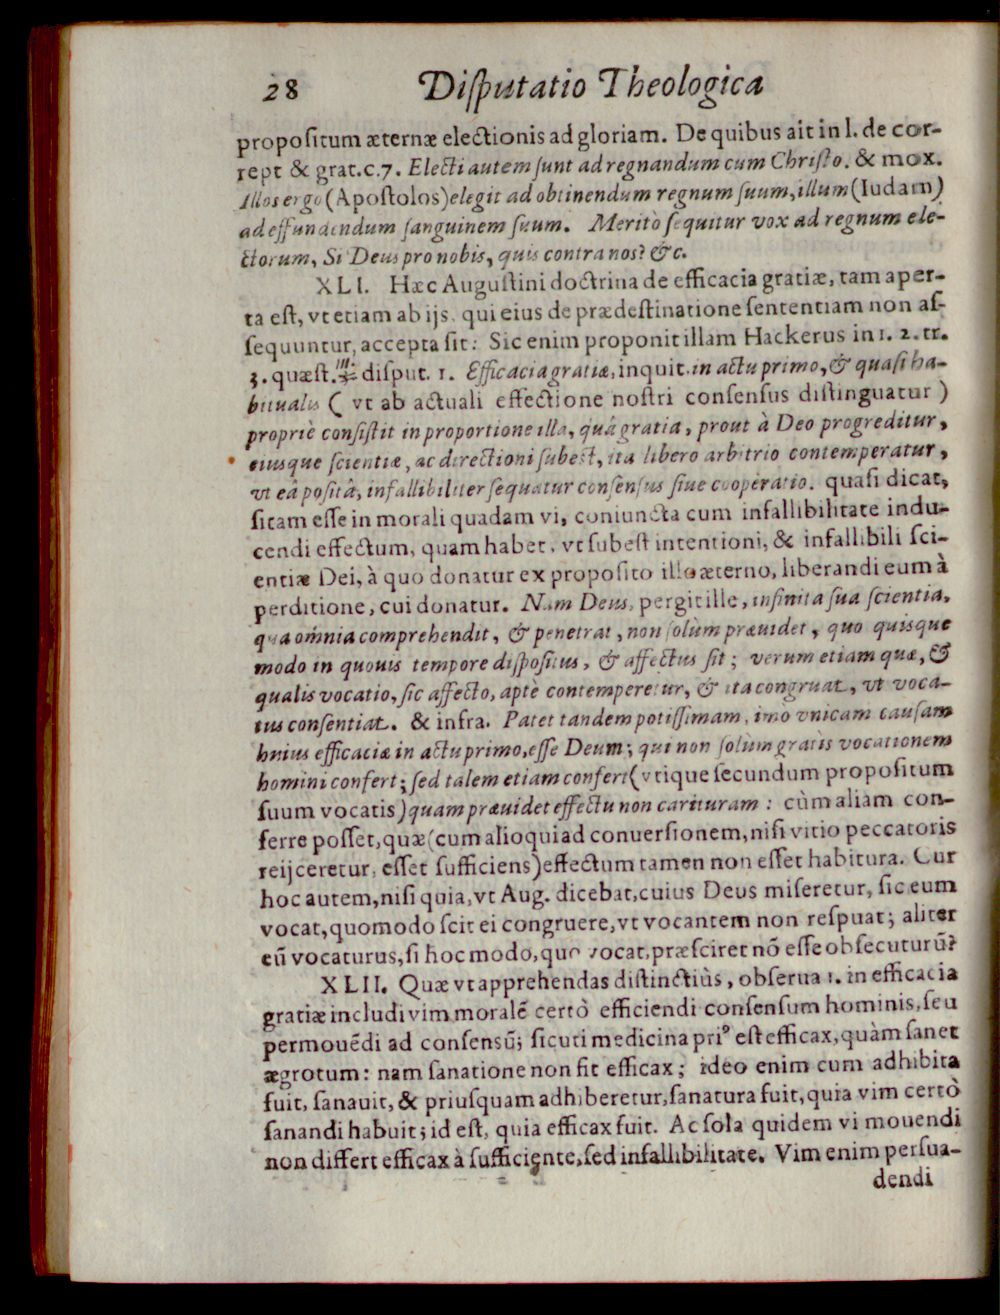 28 Diſputatio Theologica
propoſitum æternæ electionis ad gloriam. De quibus ait in l. de cor-
rept & grat. c. 7. Electi autem ſunt ad regnandum cum Chriſto. & mox.
Illos ergo (Apoſtolos) elegit ad obtinendum regnum ſuum, illum (Iudam)
ad effundendum ſanguinem ſuum. Meritò ſequitur vox ad regnum ele-
ctorum, Si Deus pro nobis, quis contra nos? &c.
XLI. Hæc Auguſtini doctrina de efficacia gratiæ, tam aper-
ta eſt, vt etiam ab ijs, qui eius de prædeſtinatione ſententiam non aſ-
ſequuntur, accepta ſit: Sic enim proponit illam Hackerus in 1. 2. tr.
3. quæſt. diſput. 1. Efficacia gratiæ, inquit, in actu primo, & quaſi ha-
bitualis ( vt ab actuali effectione noſtri conſenſus diſtinguatur )
propriè conſiſtit in proportione illa, quâ gratia, prout à Deo progreditur,
eiusque ſcientiæ, ac directioni ſubeſt, ita libero arbitrio contemperatur,
vt eâ poſitâ, infallibiliter ſequatur conſenſus ſiue cooperatio. quaſi dicat,
ſitam eſſe in morali quadam vi, coniuncta cum infallibilitate indu-
cendi effectum, quam habet, vt ſubeſt intentioni, & infallibili ſci-
entiæ Dei, à quo donatur ex propoſito illo æterno, liberandi eum à
perditione, cui donatur. Nam Deus, pergit ille, infinita ſua ſcientia,
qua omnia comprehendit, & penetrat, non ſolùm præuidet, quo quisque
modo in quouis tempore diſpoſitus, & affectus ſit; verum etiam quæ, &
qualis vocatio, ſic affecto, aptè contemperetur, & ita congruat, vt voca-
tus conſentiat. & infra. Patet tandem potiſſimam, imò vnicam cauſam
huius efficaciæ in actu primo, eſſe Deum; qui non ſolùm gratis vocationem
homini confert; ſed talem etiam confert (vtique ſecundum propoſitum
ſuum vocatis) quam præuidet effectu non carituram: cùm aliam con-
ferre poſſet, quæ (cum alioqui ad conuerſionem, niſi vitio peccatoris
reijceretur, eſſet ſufficiens) effectum tamen non eſſet habitura. Cur
hoc autem, niſi quia, vt Aug. dicebat, cuius Deus miſeretur, ſic eum
vocat, quomodo ſcit ei congruere, vt vocantem non reſpuat; aliter
eũ vocaturus, ſi hoc modo, quo vocat, præſciret nõ eſſe obſecuturũ?
XLII. Quæ vt apprehendas diſtinctiùs, obſerua 1. in efficacia
gratiæ includi vim moralẽ certò efficiendi conſenſum hominis, ſeu
permouẽdi ad conſensũ; ſicuti medicina priꝰ eſt efficax, quàm ſanet
ægrotum: nam ſanatione non fit efficax; ideo enim cum adhibita
fuit, ſanauit, & priuſquam adhiberetur, ſanatura fuit, quia vim certò
ſanandi habuit; id eſt, quia efficax fuit. Ac ſola quidem vi mouendi
non differt efficax à ſufficiente, ſed infallibilitate. Vim enim perſua-
dendi